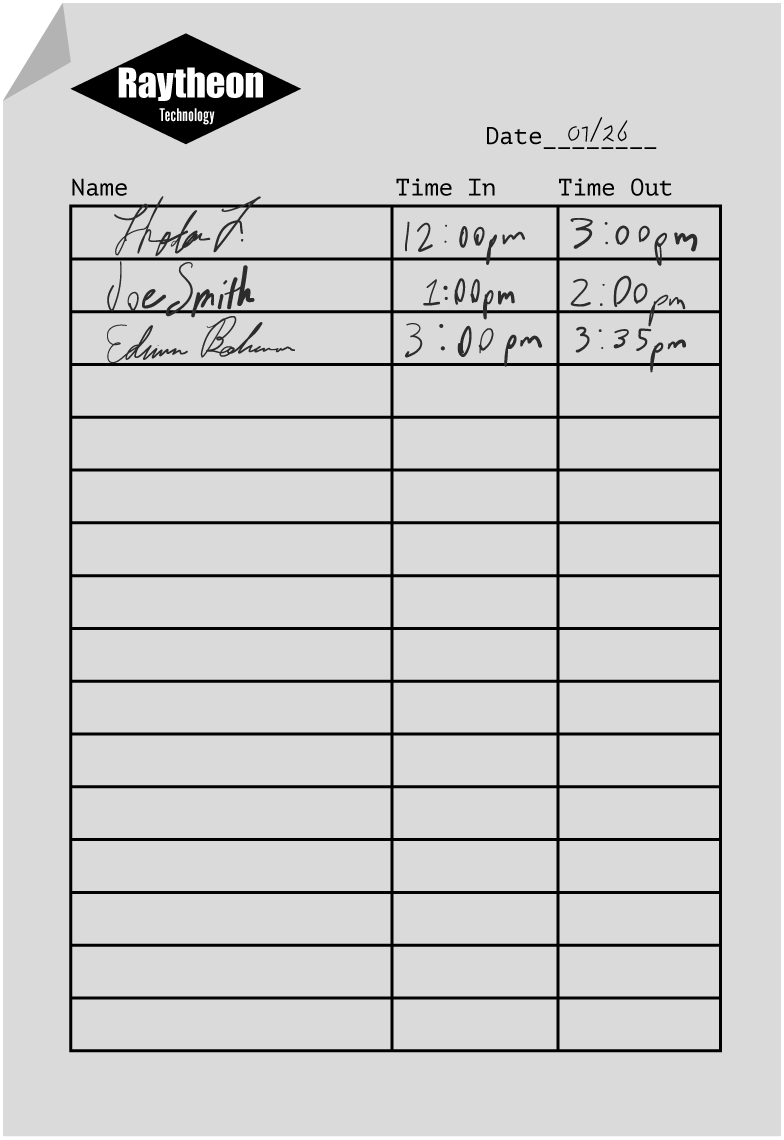 Raytheon
Technology
Date 07/26
Name Time In Time Out
12:00pm 3:00pm
Joe Smith 1:00pm 2:00pm
3:00pm 3:35pm